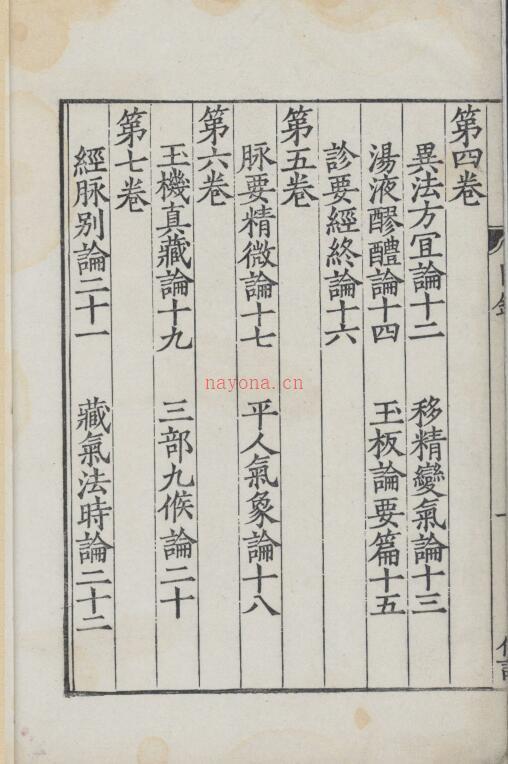 第四卷
異法方宜論十二 移精變氣論十三
湯液醪醴論十四 玉板論要篇十五
診要經終論十六
第五卷
脉要精微論十七 平人氣象論十八
第六卷
玉機真藏論十九 三部九候論二十
第七卷
經脉别論二十一 藏氣法時論二十二
nayona.cn